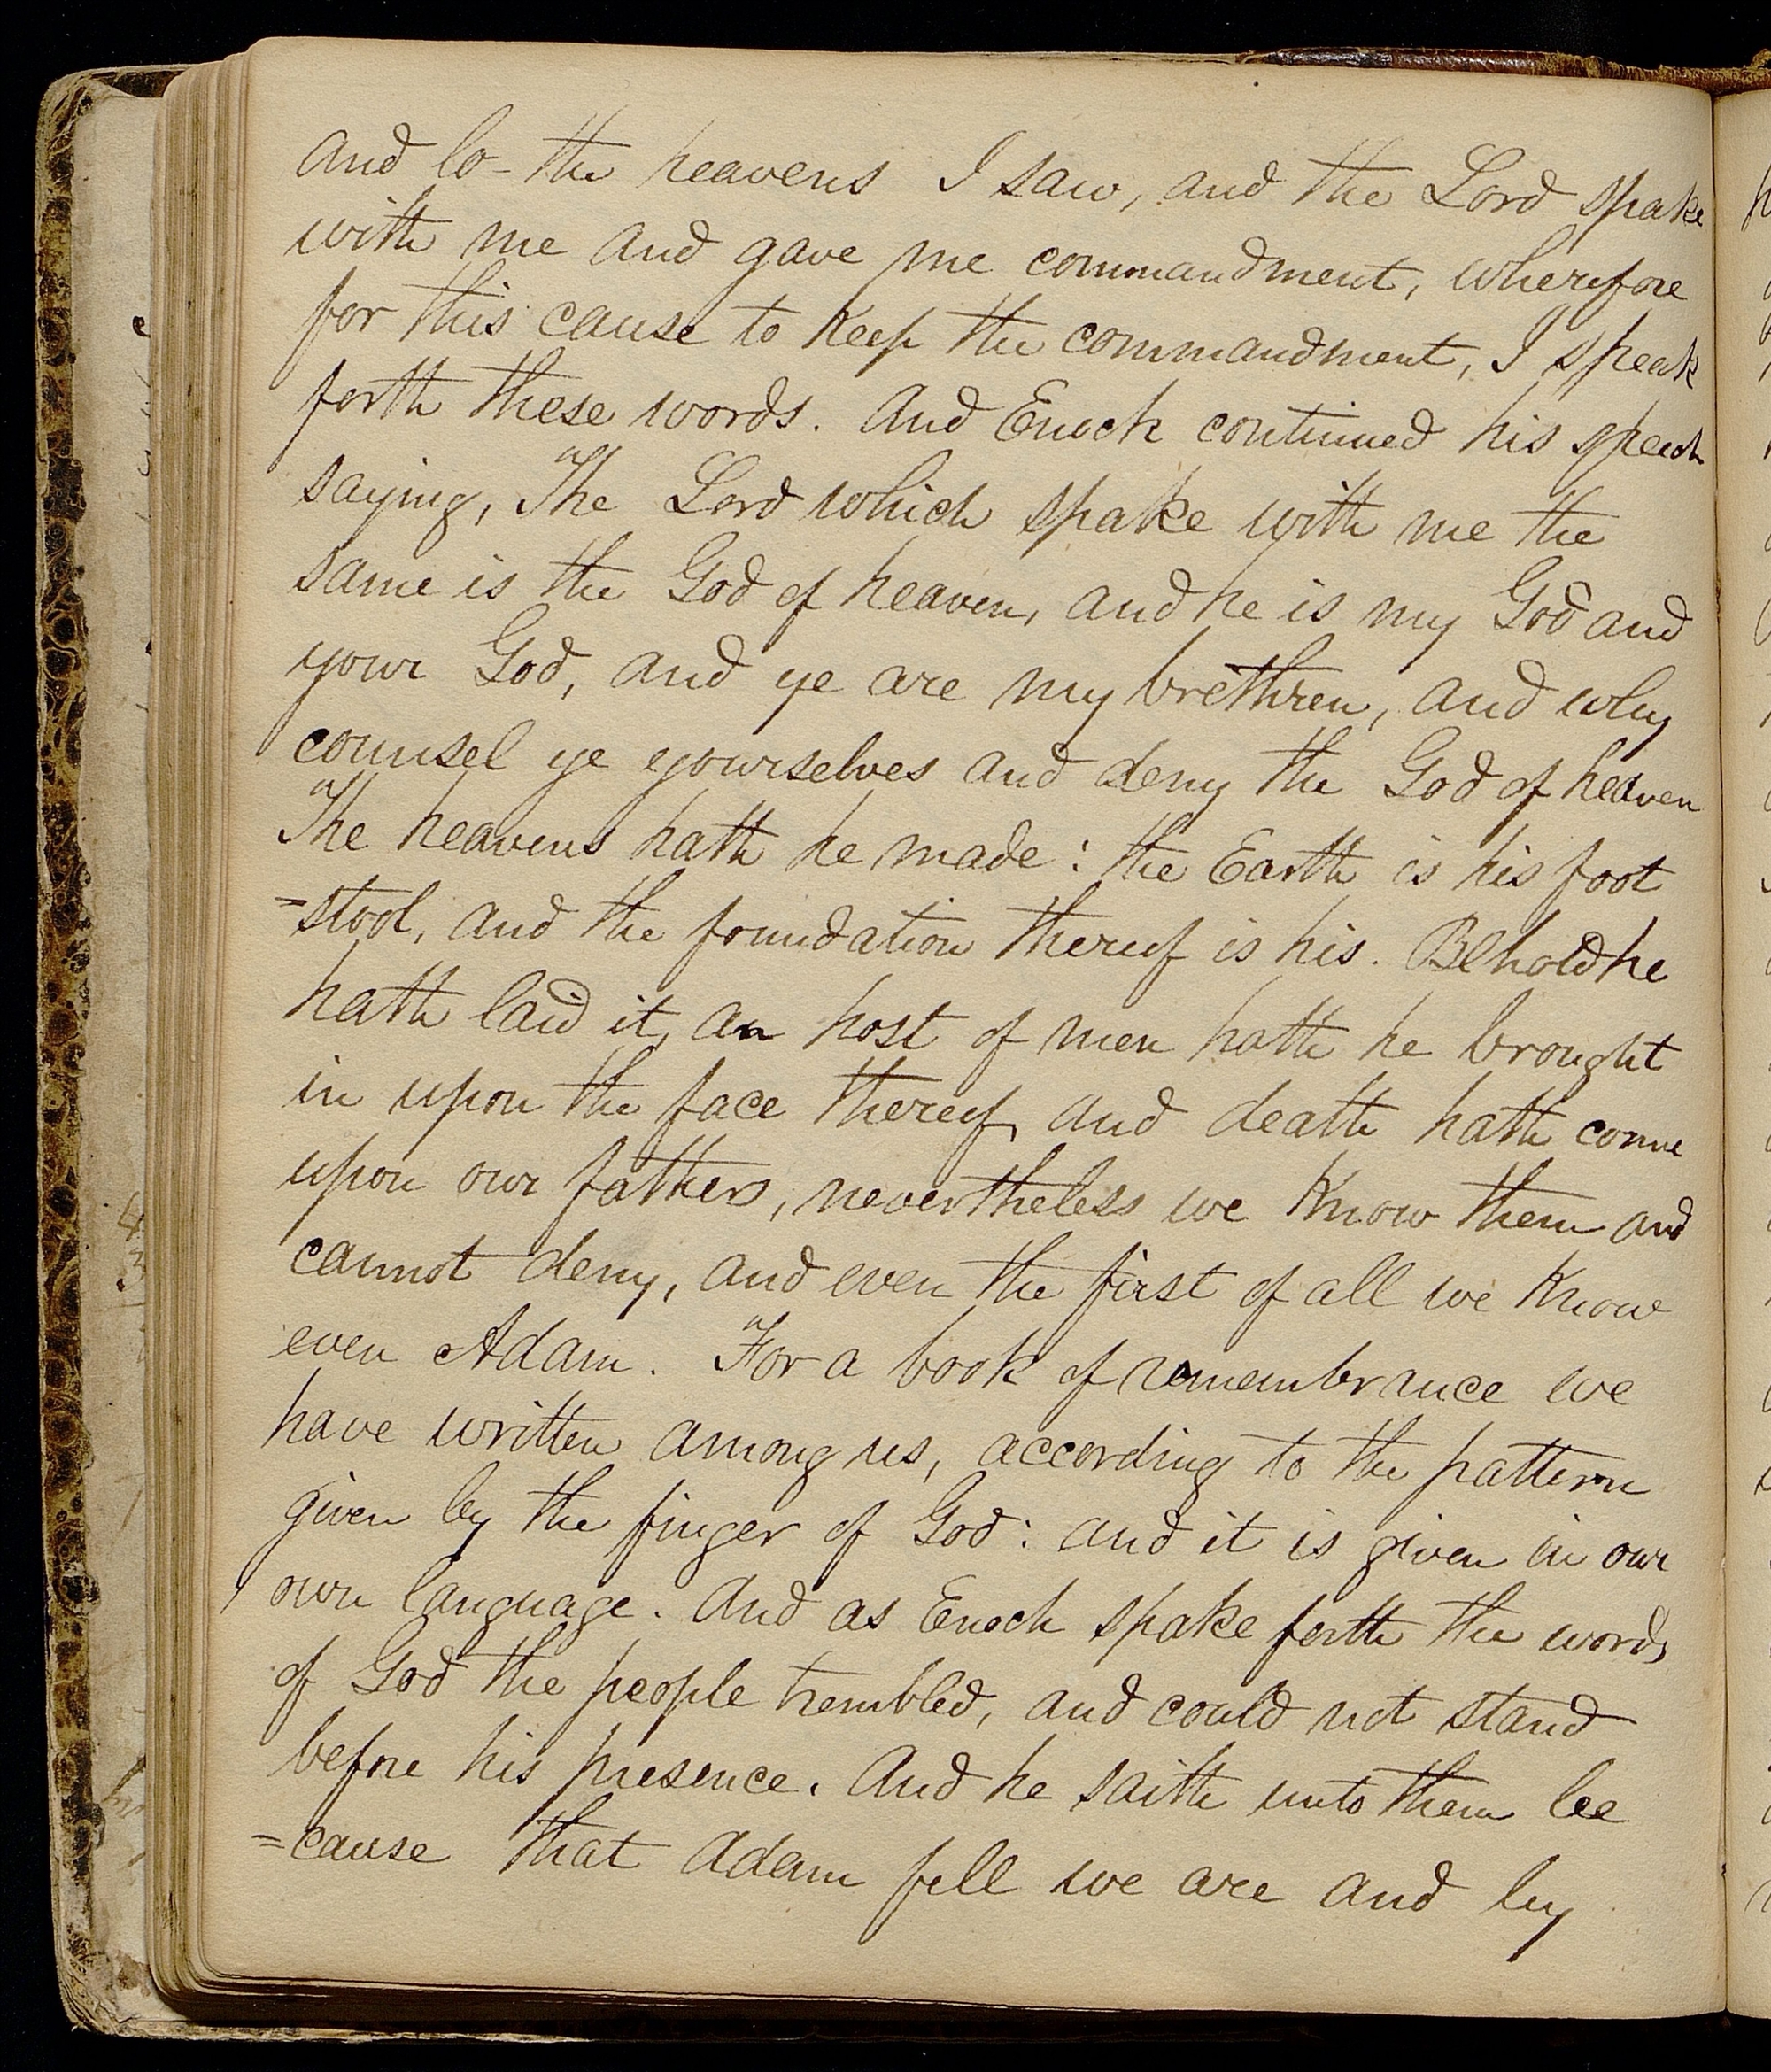 and lo - the heavens I saw, and the Lord spake
with me and gave me commandment, wherefore
for this cause to keep the commandment, I speak
forth these words. And Enoch continued his speech
saying, The Lord which spake with me the
same is the God of heaven, and he is my God and
your God, and ye are my brethren, and why
counsel ye yourselves and deny the God of heaven
The heavens hath he made : the Earth is his foot
=stool, and the foundation thereof is his. Behold he
hath laid it, an host of men hath he brought
in upon the face thereof, and death hath come
upon our fathers, nevertheless we know them and
cannot deny, and even the first of all we know
even Adam. For a book of remembrance we
have written among us, according to the pattern
given by the finger of God : and it is given in our
own language. And as Enoch spake forth the words
of God the people trembled, and could not stand
before his presence. And he saith unto them be
=cause that Adam fell we are and by